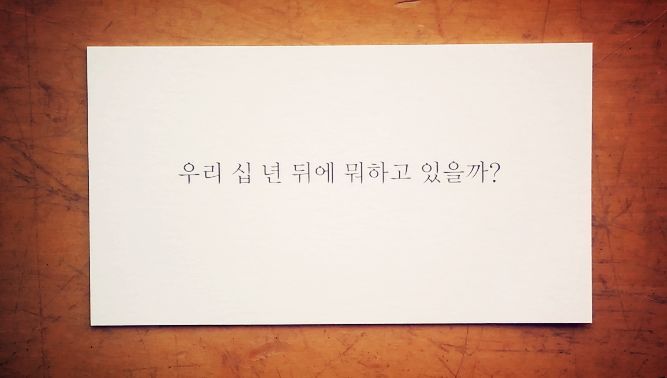 우리 십 년 뒤에 뭐하고 있을까?